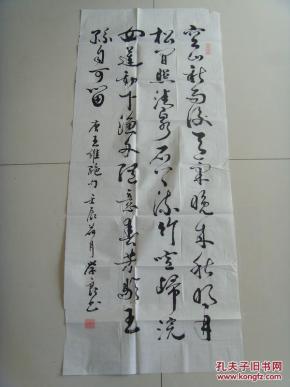 空山新雨后天气晚来秋明月
松间照清泉石上流竹喧归浣
女莲动下渔舟随意春芳歇王
孙自可留
唐王维绝句 壬辰荷月 荣良书
孔夫子旧书网